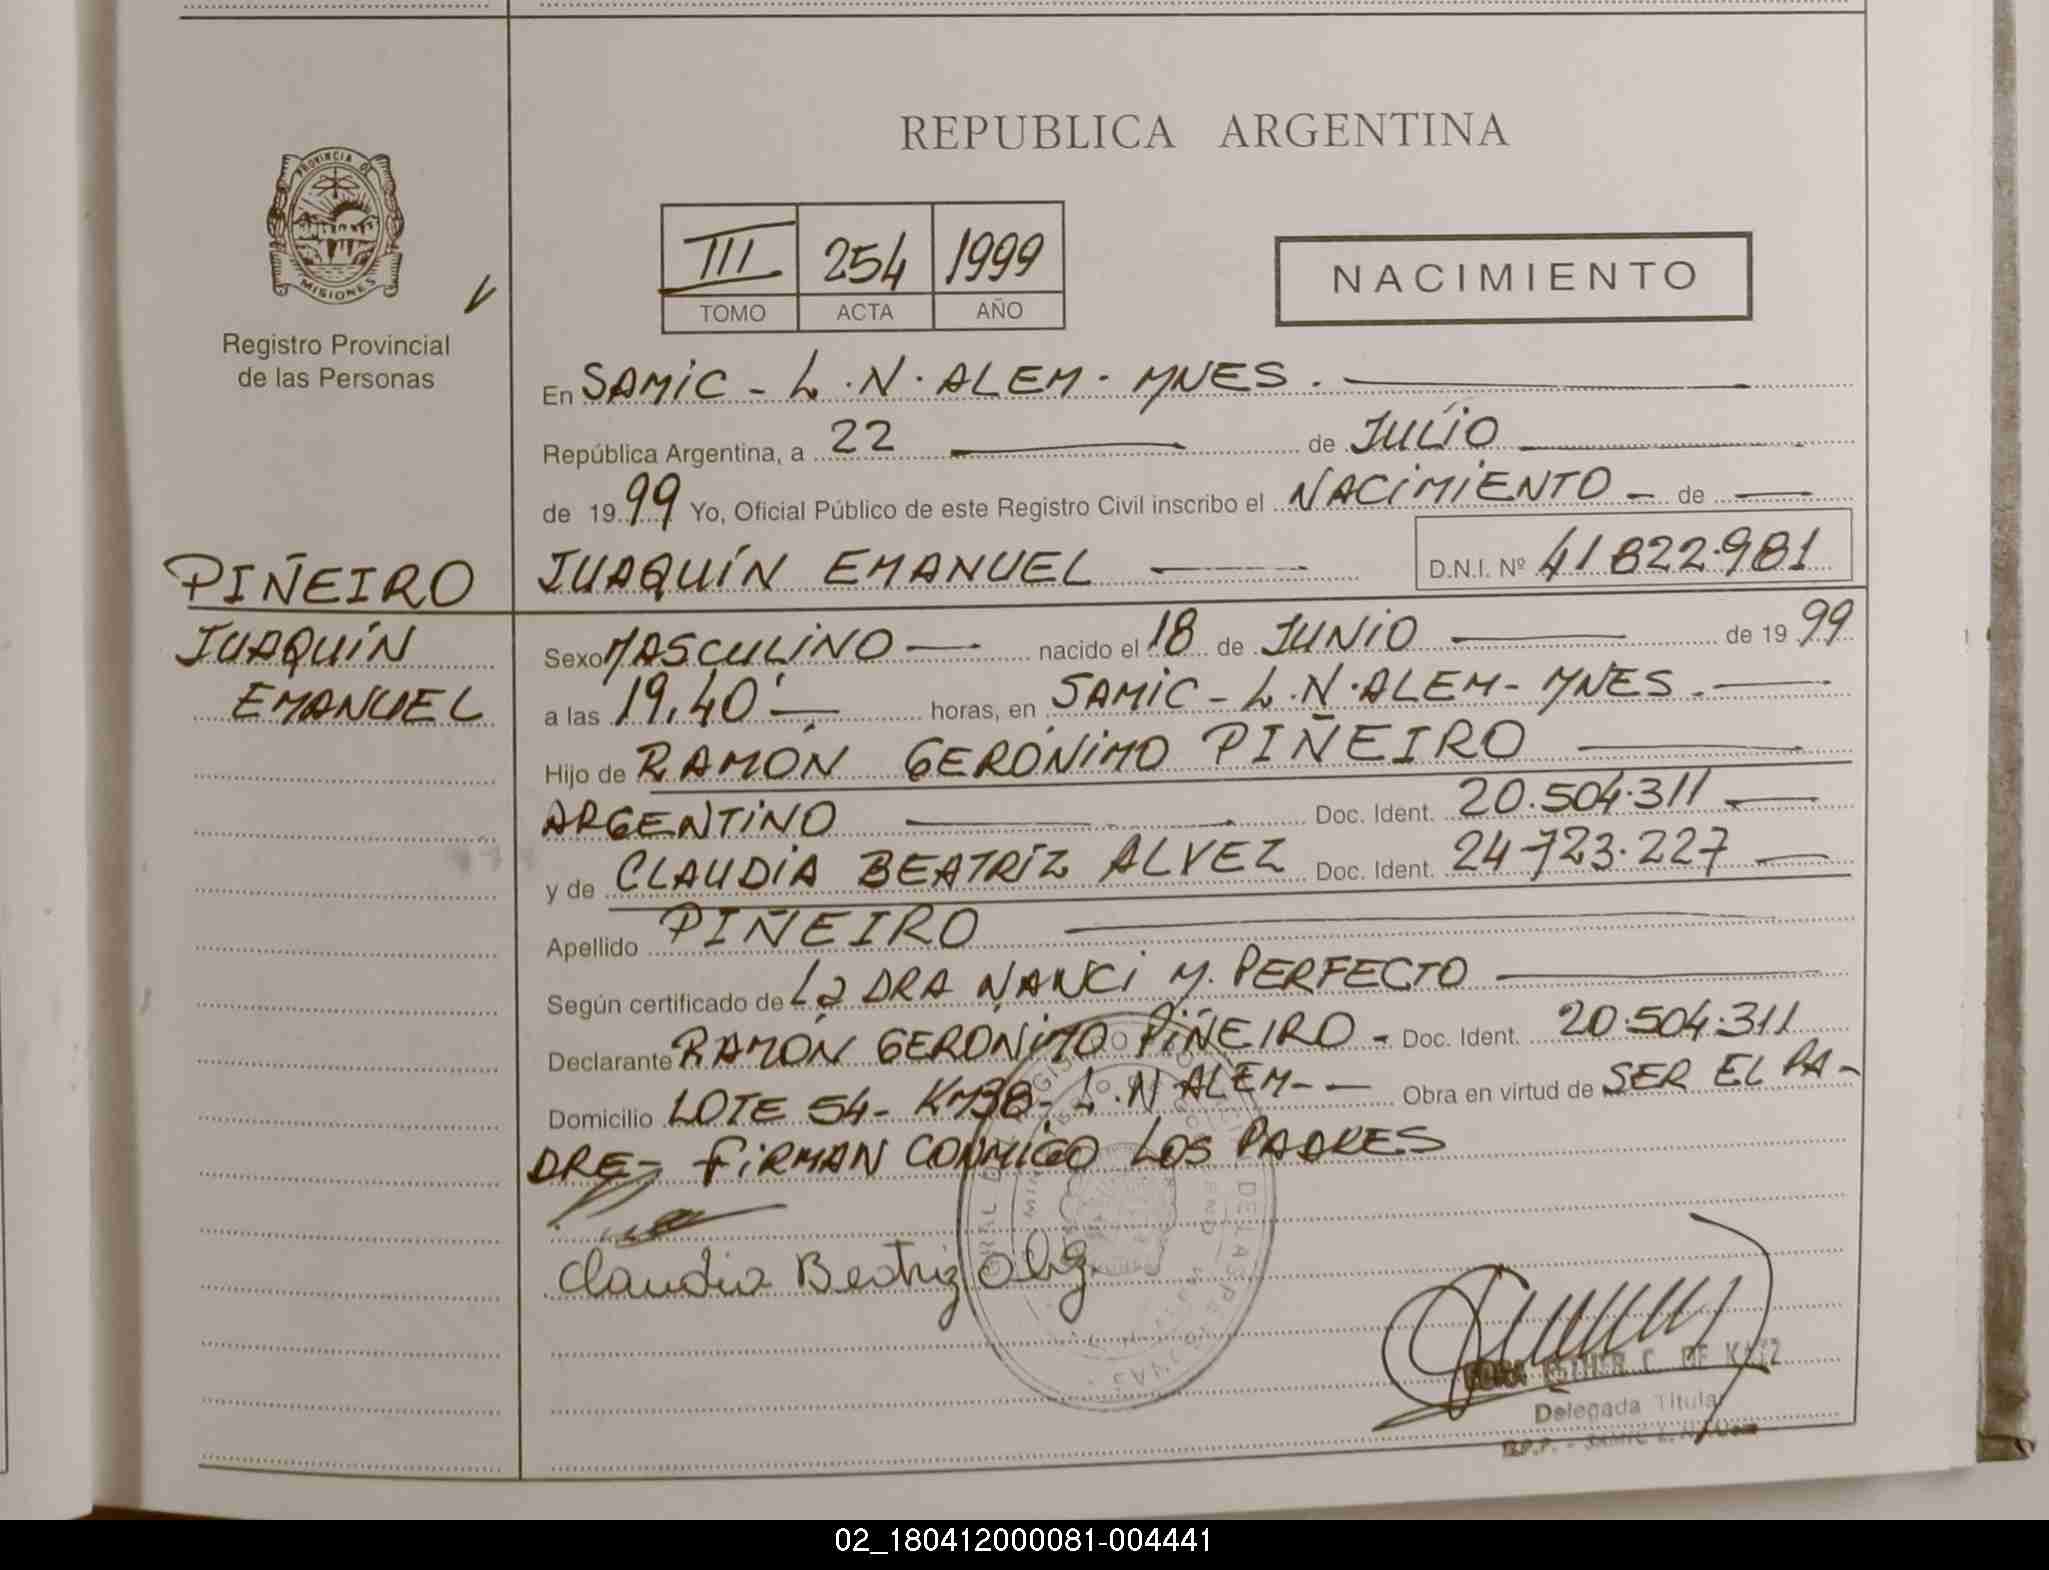 REPUBLICA ARGENTINA
PROVINCIA DE
MISIONES
Registro Provincial
de las Personas
III 254 1999
TOMO ACTA AÑO
NACIMIENTO
En SAMIC - L.N.ALEM - MNES.
República Argentina, a 22 de JULIO
de 1999 Yo, Oficial Público de este Registro Civil inscribo el NACIMIENTO - de
JUAQUÍN EMANUEL D.N.I. Nº 41822.981
PIÑEIRO
JUAQUÍN
EMANUEL
Sexo MASCULINO nacido el 18 de JUNIO de 1999
a las 19,40' horas, en SAMIC - L.N.ALEM - MNES.
Hijo de RAMÓN GERÓNIMO PIÑEIRO
ARGENTINO Doc. Ident. 20.504.311
y de CLAUDIA BEATRÍZ ALVEZ Doc. Ident. 24723.227
Apellido PIÑEIRO
Según certificado de La DRA NANCI M. PERFECTO
Declarante RAMÓN GERÓNIMO PIÑEIRO - Doc. Ident. 20.504.311
Domicilio LOTE 54 - KM38 - L.N ALEM - Obra en virtud de SER EL PA-
DRE - FIRMAN CONMIGO LOS PADRES
Claudia Beatriz
DE KATZ
Delegada Titular
02_180412000081-004441